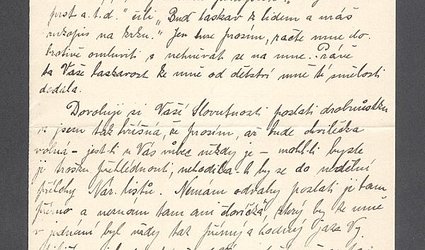 prst a.t.d." čili „Buď laskav k lidem a máš
rukopis na krku." Jen Vás prosím, račte mně do-
brotivě omluviti a nehněvat se na mne. Práve
ta Vaše laskavost ke mně od dětství mně té smělosti
dodala.
Dovoluji si Vaší Slovutnosti poslati drobnůstku
a jsem tak hříšná, že prosím, až bude chvilečka
volná – jest-li u Vás vůbec nikdy je – mohl-li byste
ji trošku přehlédnout, nehodila-li by se do nedělní
přílohy Nár. listů. Nemám odvahy poslati je tam
přímo a nemám tam ani človíčka, který by ke mně
v jednání byl nikdy tak přímý a laskavý jako Vy.